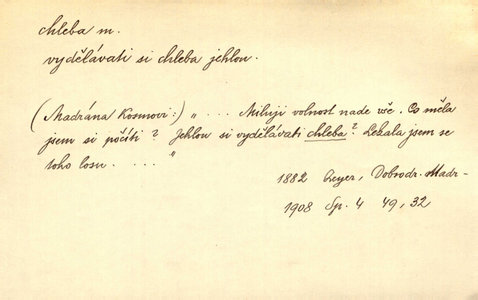 chleba m.
vydělávati si chleba jehlou.
(Madrána Kosmovi:) „ . . . Miluji volnost nade vše. Co měla
jsem si počíti? Jehlou si vydělávati chleba? Lekala jsem se
toho losu. . . . . "
1882 Zeyer, Dobrodr. Madr-
1908 Sp. 4 49, 32